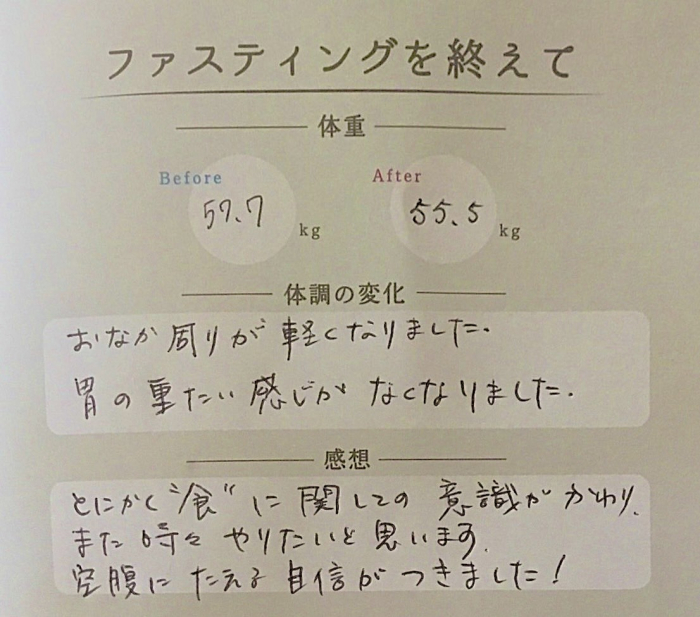 ファスティングを終えて
体重
Before
After
57.7
kg
55.5
kg
体調の変化
おなか周りが軽くなりました.
胃の重たい感じがなくなりました.
感想
とにかく"食"に関しての意識がかわり、
また時々やりたいと思います.
空腹にたえる自信がつきました!